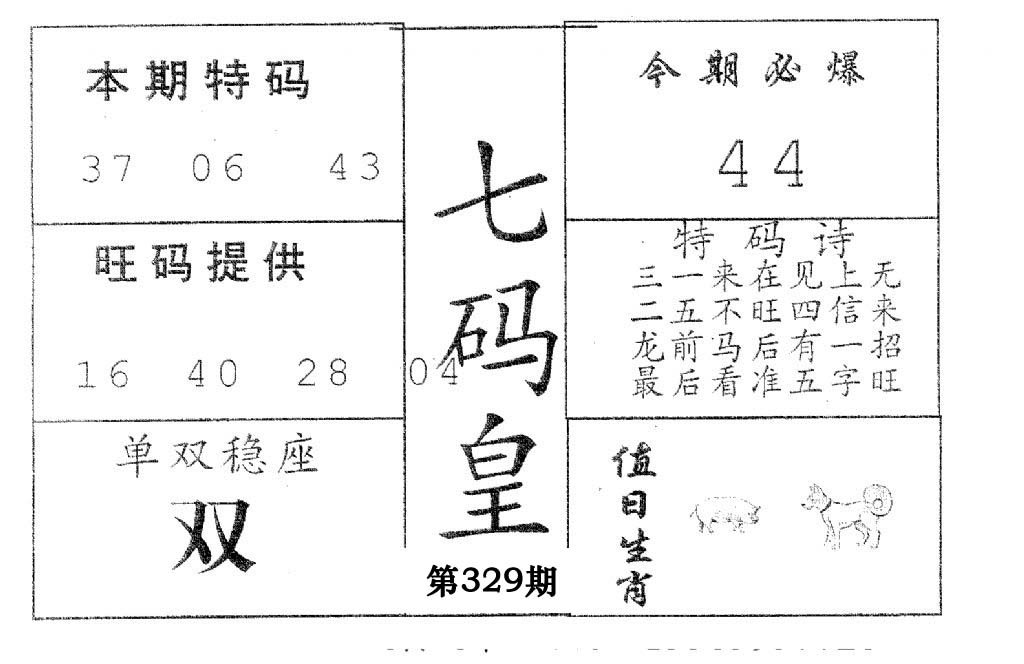 本期特码
37 06 43
旺码提供
16 40 28 04
单双稳座
双
七码皇
第329期
今期必爆
44
特码诗
三一来在见上无
二五不旺四信来
龙前马后有一招
最后看准五字旺
值日生肖